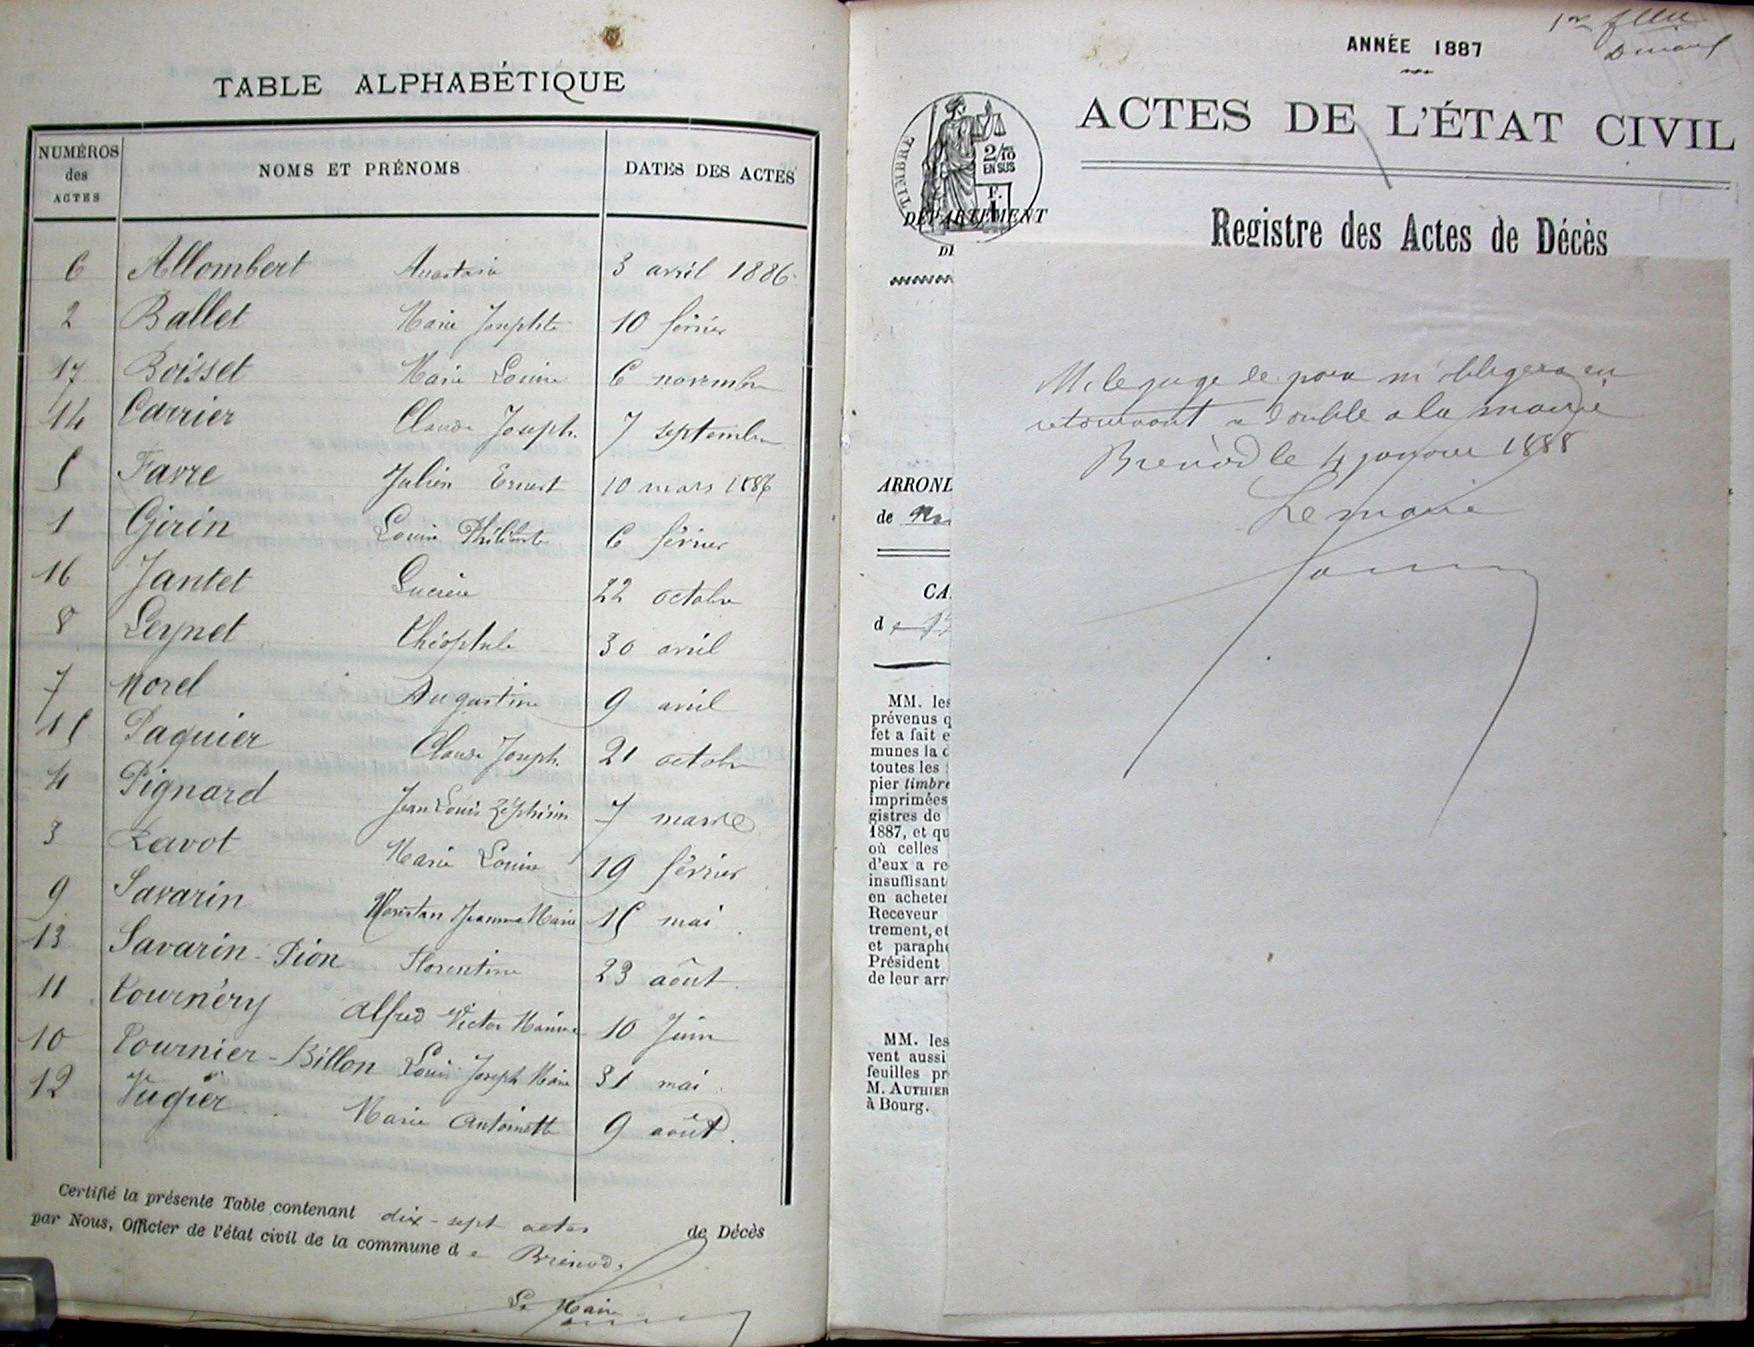 TABLE ALPHABÉTIQUE
NUMÉROS des ACTES NOMS ET PRÉNOMS DATES DES ACTES
6 Allombert Anastasie 3 avril 1886
2 Ballet Marie Josephte 10 février
17 Boisset Marie Louise 6 novembre
14 Carrier Claude Joseph 7 septembre
5 Favre Julien Ernest 10 mars 1886
1 Girin Louise Philiberte 6 février
16 Jantet Lucien 22 octobre
8 Leynet Théophile 30 avril
7 Morel Augustine 9 avril
15 Paquier Claude Joseph 21 octobre
4 Pignard Jean Louis Zéphirin 7 mars
3 Ravot Marie Louise 19 février
9 Savarin Jeanne Marie 15 mai
13 Savarin-Pion Florentine 23 août
11 Tournéry Alfred Victor Maxime 10 Juin
10 Tournier-Billon Louis Joseph Marie 31 mai
12 Vugier Marie Antoinette 9 août.
Certifié la présente Table contenant dix-sept actes de Décès
par Nous, Officier de l'état civil de la commune de Brénod.
Le Maire
ANNÉE 1887
ACTES DE L'ÉTAT CIVIL
TIMBRE
2/10
EN SUS
DÉPARTEMENT
Registre des Actes de Décès
M. le juge de paix m'obligera en
retournant double a la mairie
Brenod le 4 janvier 1888
Le maire
ARROND
de
CA
d
MM. les
prévenus q
fet a fait e
munes la d
toutes les
pier timbre
imprimées
gistres de
1887, et qu
où celles
d'eux a re
insuffisant
en acheter
Receveur
trement, et
et paraphe
Président
de leur arr
MM. les
vent aussi
feuilles pr
M. AUTHIER
à Bourg.